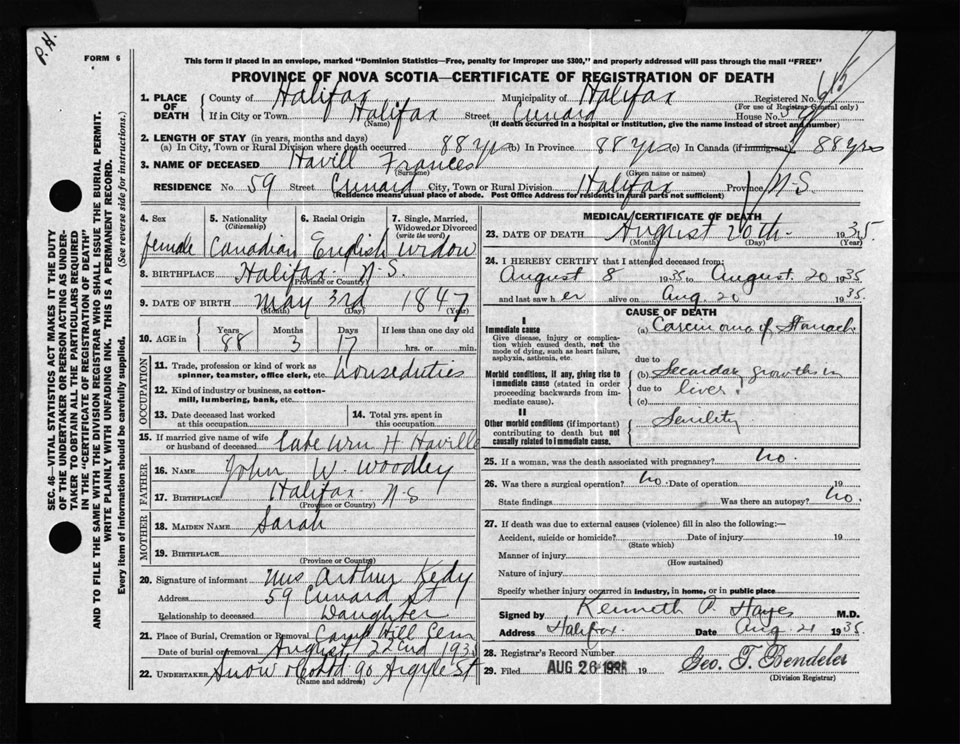 P.H.
FORM 6
This form if placed in an envelope, marked "Dominion Statistics—Free, penalty for improper use $300," and properly addressed will pass through the mail "FREE"
PROVINCE OF NOVA SCOTIA—CERTIFICATE OF REGISTRATION OF DEATH
1. PLACE OF DEATH County of Halifax Municipality of Halifax Registered No.
(For use of Registrar General only)
If in City or Town Halifax Street Cunard House No. 59
(Name) (If death occurred in a hospital or institution, give the name instead of street and number)
2. LENGTH OF STAY (in years, months and days)
(a) In City, Town or Rural Division where death occurred 88 yrs (b) In Province 88 yrs (c) In Canada (if immigrant) 88 yrs
3. NAME OF DECEASED Havill Frances
(Surname) (Given name or names)
RESIDENCE No. 59 Street Cunard City, Town or Rural Division Halifax Province N.S.
(Residence means usual place of abode. Post Office Address for residents in rural parts not sufficient)
4. Sex female
5. Nationality (Citizenship) Canadian
6. Racial Origin English
7. Single, Married, Widowed or Divorced (write the word) widow
8. BIRTHPLACE Halifax N.S.
(Province or Country)
9. DATE OF BIRTH May 3rd 1847
(Month) (Day) (Year)
10. AGE in Years 88 Months 3 Days 17 If less than one day old hrs. or min.
OCCUPATION
11. Trade, profession or kind of work as spinner, teamster, office clerk, etc. houseduties
12. Kind of industry or business, as cotton-mill, lumbering, bank, etc.
13. Date deceased last worked at this occupation
14. Total yrs. spent in this occupation
15. If married give name of wife or husband of deceased H Haville
FATHER
16. NAME John W. Woodley
17. BIRTHPLACE Halifax N.S
(Province or Country)
MOTHER
18. MAIDEN NAME Sarah
19. BIRTHPLACE
(Province or Country)
20. Signature of informant Mrs Arthur Kedy
Address 59 Cunard St
Relationship to deceased Daughter
21. Place of Burial, Cremation or Removal Camp Hill Cem
Date of burial or removal August 22nd 1935
22. UNDERTAKER Snow & Co Ltd 90 Argyle St
(Name and address)
MEDICAL CERTIFICATE OF DEATH
23. DATE OF DEATH August 20th 1935.
(Month) (Day) (Year)
24. I HEREBY CERTIFY that I attended deceased from:
August 8 1935 to August 20 1935
and last saw her alive on Aug. 20 1935.
CAUSE OF DEATH
I
Immediate cause
Give disease, injury or complication which caused death, not the mode of dying, such as heart failure, asphyxia, asthenia, etc.
(a) Carcinoma of Stomach
due to
Morbid conditions, if any, giving rise to immediate cause (stated in order proceeding backwards from immediate cause).
(b) Secondary growths in
due to liver
(c)
II
Other morbid conditions (if important) contributing to death but not causally related to immediate cause.
Senility
25. If a woman, was the death associated with pregnancy? no.
26. Was there a surgical operation? no. Date of operation 19
State findings Was there an autopsy? no.
27. If death was due to external causes (violence) fill in also the following:—
Accident, suicide or homicide? Date of injury 19
(State which)
Manner of injury
(How sustained)
Nature of injury
Specify whether injury occurred in industry, in home, or in public place
Signed by Kenneth P. Hayes M.D.
Address Halifax. Date Aug 21 1935.
28. Registrar's Record Number
29. Filed AUG 26 1935 19 Geo. T. Bendeler
(Division Registrar)
SEC. 46—VITAL STATISTICS ACT MAKES IT THE DUTY
OF THE UNDERTAKER OR PERSON ACTING AS UNDER-
TAKER TO OBTAIN ALL THE PARTICULARS REQUIRED
IN THE "CERTIFICATE OF REGISTRATION OF DEATH"
AND TO FILE THE SAME WITH THE DIVISION REGISTRAR WHO SHALL ISSUE THE BURIAL PERMIT.
WRITE PLAINLY WITH UNFADING INK. THIS IS A PERMANENT RECORD.
Every item of information should be carefully supplied. (See reverse side for instructions.)